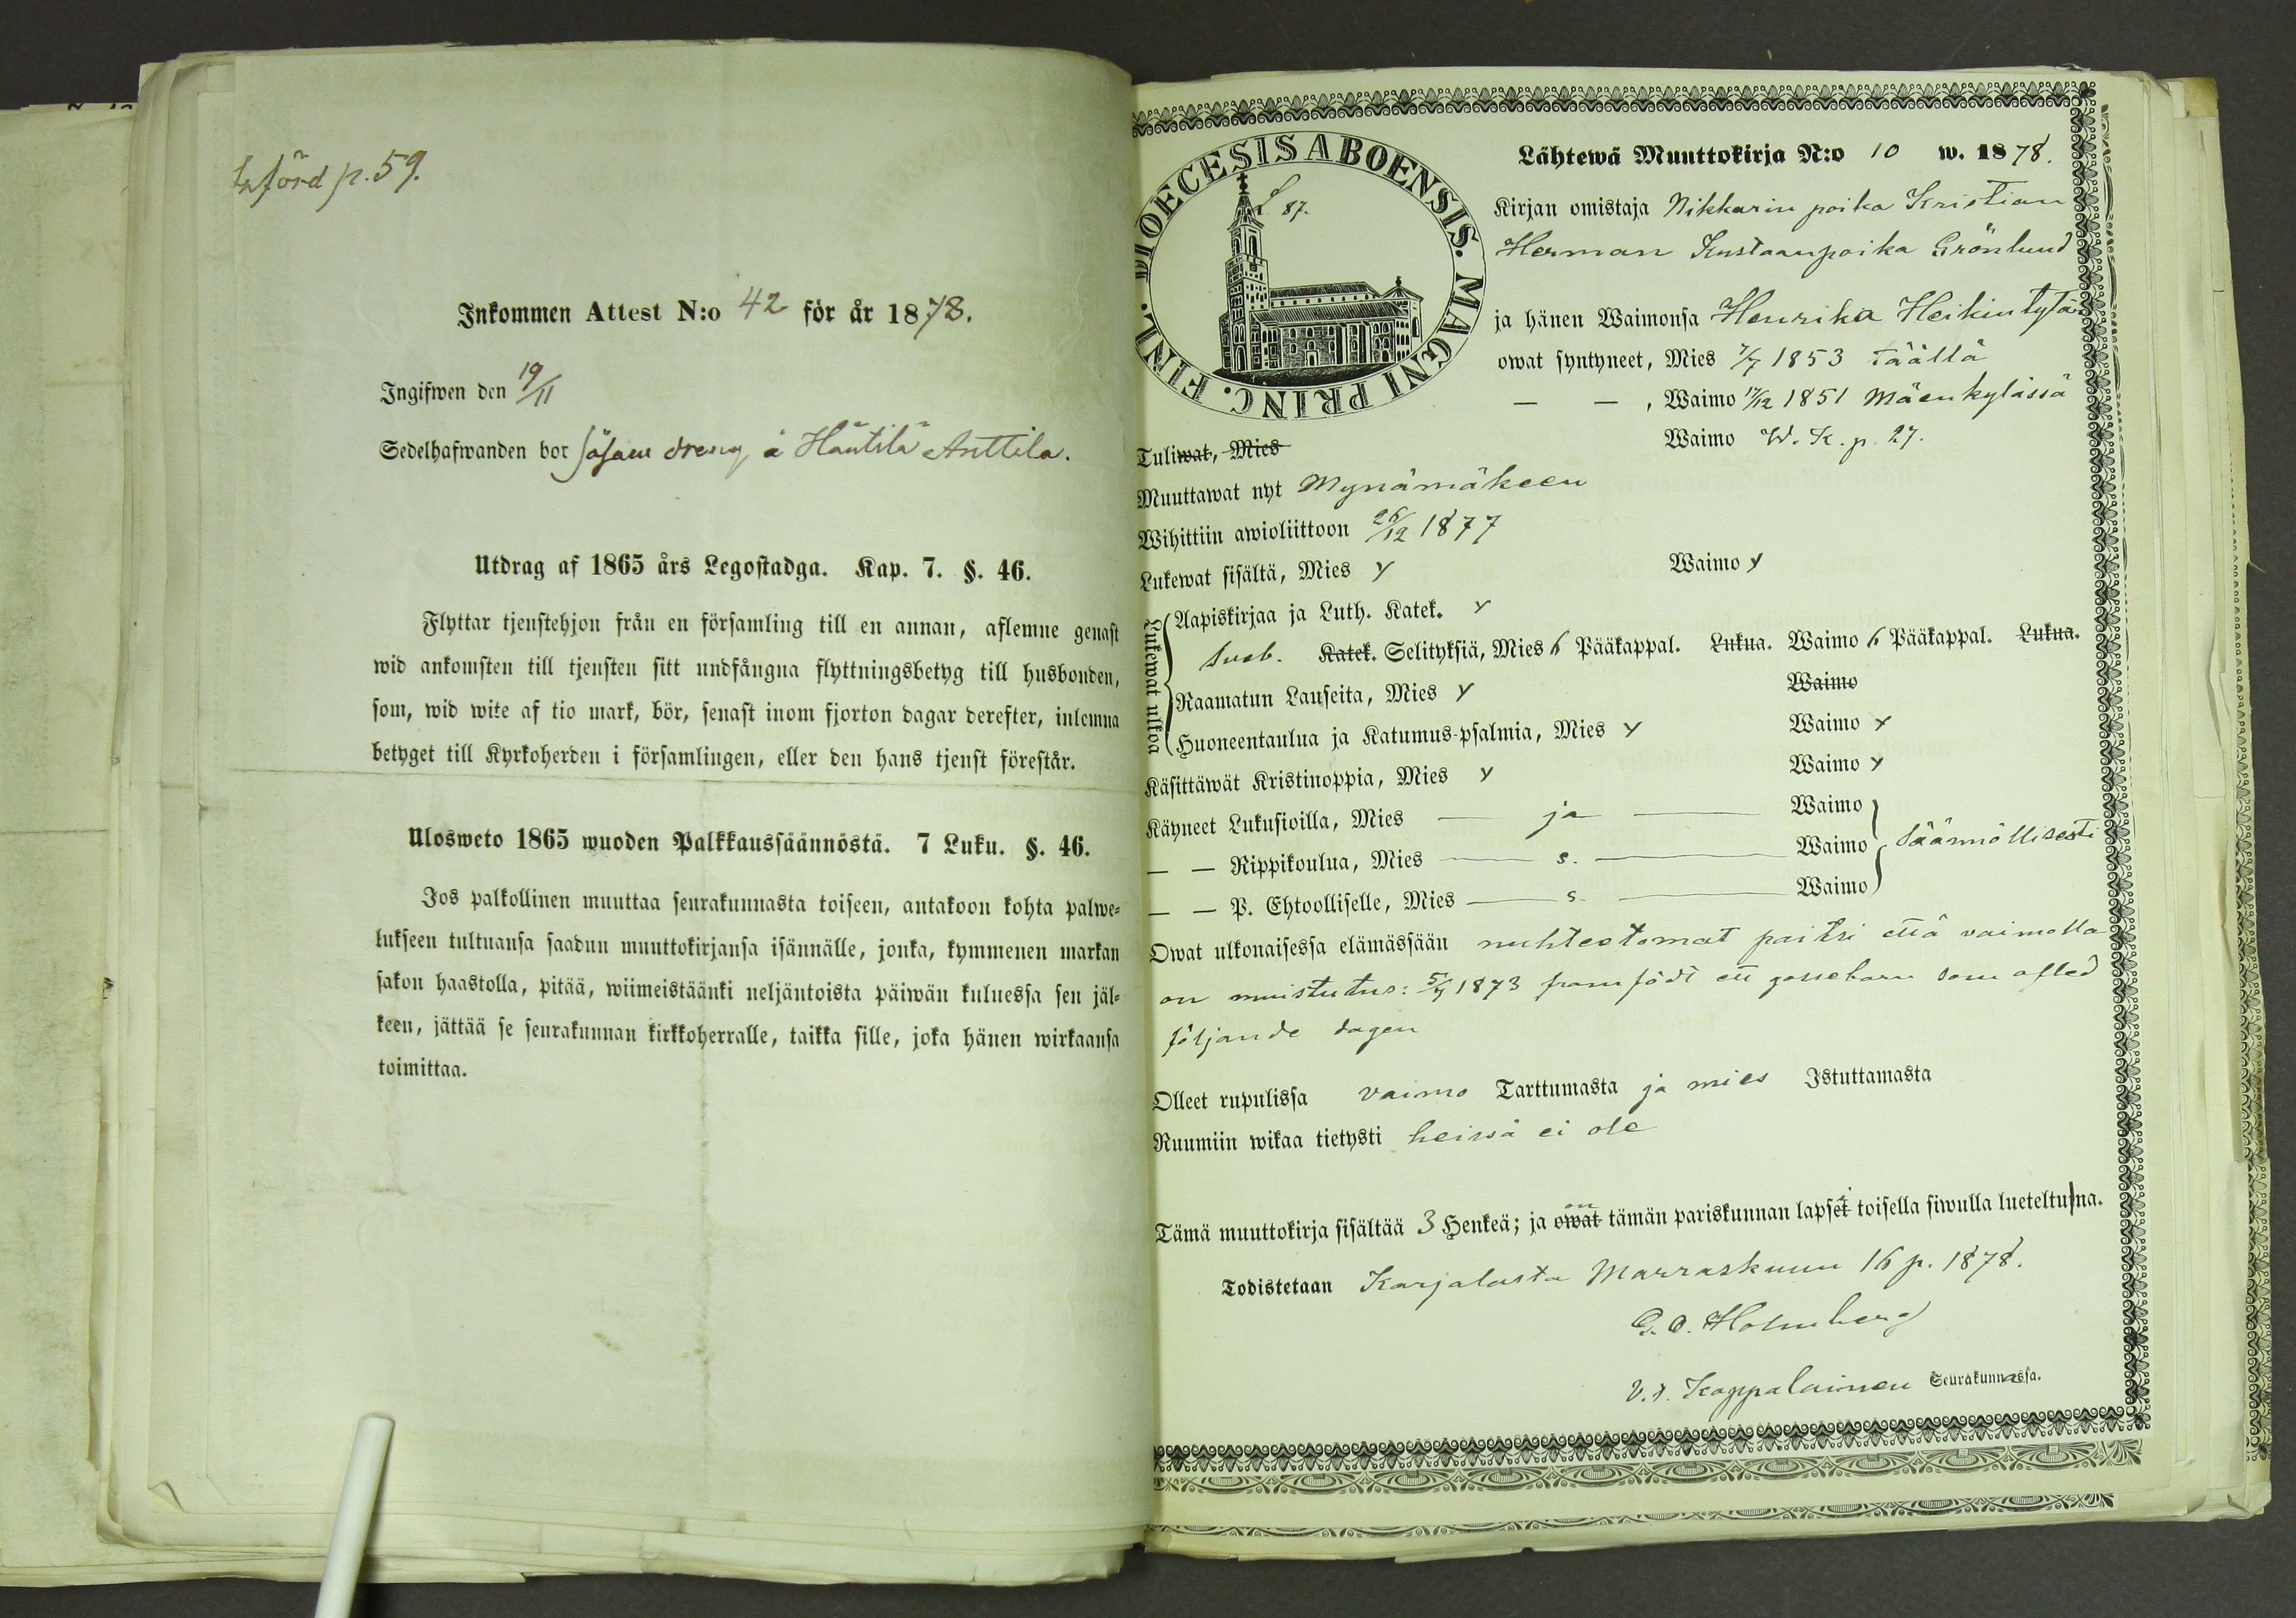 Införd p. 59.
Inkommen Attest N:o 42 för år 1878.
Ingifwen den 19/11
Sedelhafwanden bor såsom dreng å Häntilä Anttila.
Utdrag af 1865 års Legostadga. Kap. 7. §. 46.
Flyttar tjenstehjon från en församling till en annan, aflemne genast
wid ankomsten till tjensten sitt undfångna flyttningsbetyg till husbonden,
som, wid wite af tio mark, bör, senast inom fjorton dagar derefter, inlemna
betyget till Kyrkoherden i församlingen, eller den hans tjenst förestår.
Ulosweto 1865 wuoden Palkkaussäännöstä. 7 Luku. §. 46.
Jos palkollinen muuttaa seurakunnasta toiseen, antakoon kohta palwe-
lukseen tultuansa saadun muuttokirjansa isännälle, jonka, kymmenen markan
sakon haastolla, pitää, wiimeistäänki neljäntoista päiwän kuluessa sen jäl-
keen, jättää se seurakunnan kirkkoherralle, taikka sille, joka hänen wirkaansa
toimittaa.
DIOECESIS ABOENSIS. MAGNI PRINC. FINL.
L 87.
Lähtewä Muuttokirja N:o 10 w. 1878.
Kirjan omistaja Nikkarin poika Kristian
Herman Kustaanpoika Grönlund
ja hänen Waimonsa Henrika Heikintytär
owat syntyneet, Mies 7/7 1853 täällä
— — , Waimo 17/12 1851 Mäenkylässä
Tuliwat, Mies Waimo W. K. p. 27.
Muuttawat nyt Mynämäkeen
Wihittiin awioliittoon 26/12 1877
Lukewat sisältä, Mies y Waimo y
Lukewat ulkoa
Aapiskirjaa ja Luth. Katek. y
Sveb. Katek. Selityksiä, Mies 6 Pääkappal. Lukua. Waimo 6 Pääkappal. Lukua.
Raamatun Lauseita, Mies y Waimo
Huoneentaulua ja Katumus-psalmia, Mies y Waimo y
Käsittäwät Kristinoppia, Mies y Waimo y
Käyneet Lukusioilla, Mies — ja — Waimo
— — Rippikoulua, Mies — s. — Waimo säännöllisesti
— — P. Ehtoolliselle, Mies — s. — Waimo
Owat ulkonaisessa elämässään nuhteetomat paitsi että vaimolla
on muistutus: 5/7 1873 framfödt ett gossebarn som afled
följande dagen
Olleet rupulissa vaimo Tarttumasta ja mies Istuttamasta
Ruumiin wikaa tietysti heissä ei ole
Tämä muuttokirja sisältää 3 Henkeä; ja owat on tämän pariskunnan lapset i toisella siwulla lueteltuna.
Todistetaan Karjalasta Marraskuun 16 p. 1878.
G. O. Holmberg
V. t. Kappalainen Seurakunnassa.